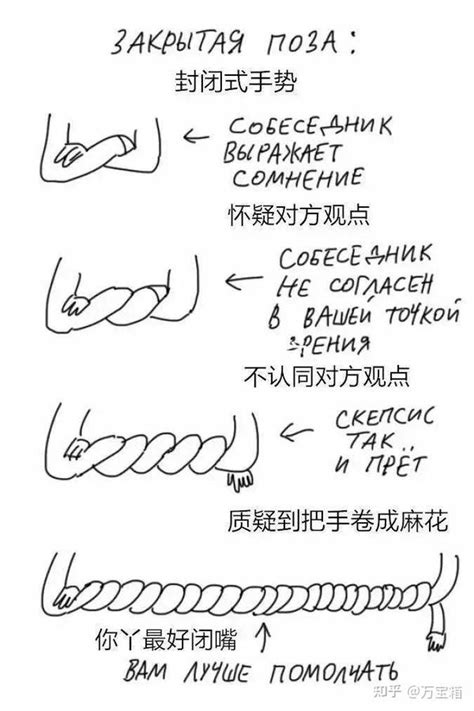 ЗАКРЫТАЯ ПОЗА:
封闭式手势
СОБЕСЕДНИК
ВЫРАЖАЕТ
СОМНЕНИЕ
怀疑对方观点
СОБЕСЕДНИК
НЕ СОГЛАСЕН
В ВАШЕЙ ТОЧКОЙ
ЗРЕНИЯ
不认同对方观点
СКЕПСИС
ТАК..
И ПРЁТ
质疑到把手卷成麻花
你丫最好闭嘴
ВАМ ЛУЧШЕ ПОМОЛЧАТЬ
知乎 @万宝箱